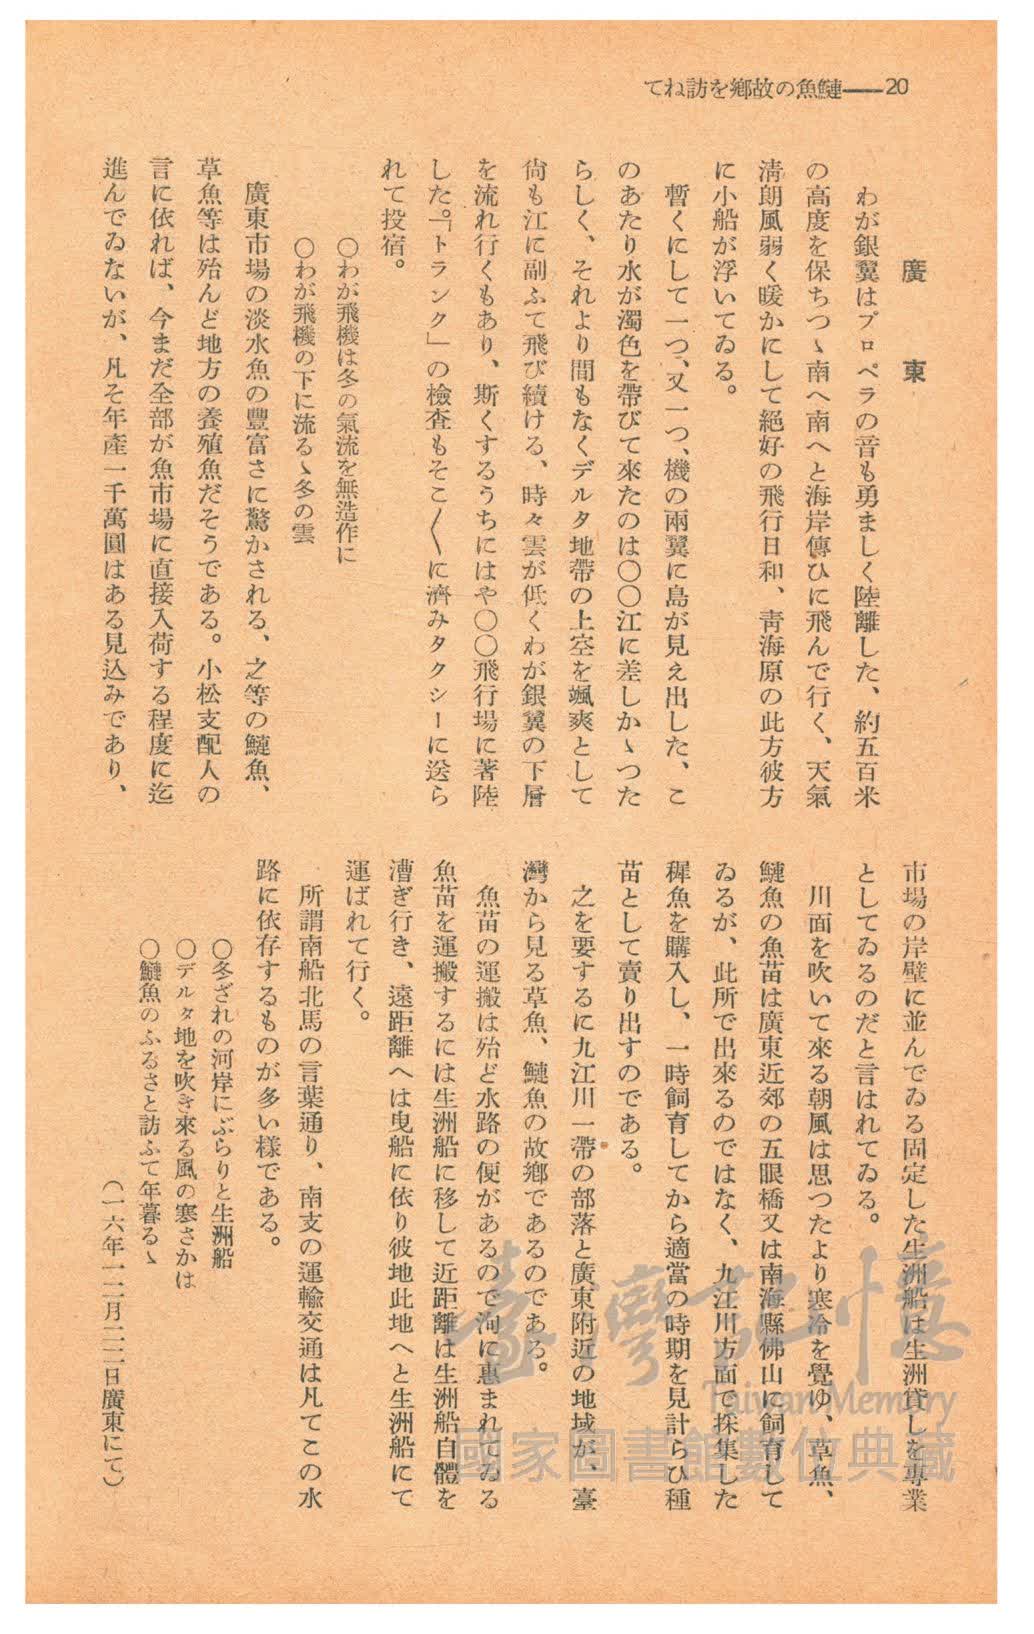 てね訪を鄕故の魚鰱——20
廣東
わが銀翼はプロペラの音も勇ましく陸離した、約五百米
の高度を保ちつゝ南へ南へと海岸傳ひに飛んで行く、天氣
淸朗風弱く暖かにして絕好の飛行日和、靑海原の此方彼方
に小船が浮いてゐる。
暫くにして一つ、又一つ、機の兩翼に島が見え出した、こ
のあたり水が濁色を帶びて來たのは〇〇江に差しかゝつた
らしく、それより間もなくデルタ地帶の上空を颯爽として
尙も江に副ふて飛び續ける、時々雲が低くわが銀翼の下層
を流れ行くもあり、斯くするうちにはや〇〇飛行場に著陸
した。「トランク」の檢査もそこ〱に濟みタクシーに送ら
れて投宿。
〇わが飛機は冬の氣流を無造作に
〇わが飛機の下に流るゝ冬の雲
廣東市場の淡水魚の豐富さに驚かされる、之等の鰱魚、
草魚等は殆んど地方の養殖魚だそうである。小松支配人の
言に依れば、今まだ全部が魚市場に直接入荷する程度に迄
進んでゐないが、凡そ年產一千萬圓はある見込みであり、
市場の岸壁に並んでゐる固定した生洲船は生洲貸しを專業
としてゐるのだと言はれてゐる。
川面を吹いて來る朝風は思つたより寒冷を覺ゆ、草魚、
鰱魚の魚苗は廣東近郊の五眼橋又は南海縣佛山に飼育して
ゐるが、此所で出來るのではなく、九江川方面で採集した
稺魚を購入し、一時飼育してから適當の時期を見計らひ種
苗として賣り出すのである。
之を要するに九江川一帶の部落と廣東附近の地域が、臺
灣から見る草魚、鰱魚の故鄕であるのである。
魚苗の運搬は殆ど水路の便があるので洵に惠まれてゐる
魚苗を運搬するには生洲船に移して近距離は生洲船自體を
漕ぎ行き、遠距離へは曳船に依り彼地此地へと生洲船にて
運ばれて行く。
所謂南船北馬の言葉通り、南支の運輸交通は凡てこの水
路に依存するものが多い樣である。
〇冬ざれの河岸にぶらりと生洲船
〇デルタ地を吹き來る風の寒さかは
〇鰱魚のふるさと訪ふて年暮るゝ
（一六年一二月二二日廣東にて）
臺灣記憶
Taiwan Memory
國家圖書館數位典藏